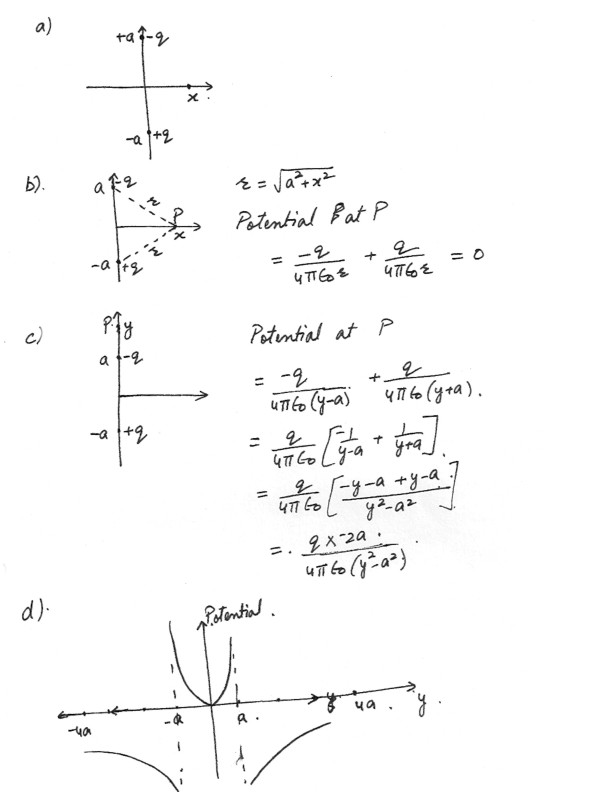 a)
+a -q
x .
-a +q
b).
a -q
r
P
x
r
-a +q
r = √a²+x²
Potential at P
= -q/4πϵ0r + q/4πϵ0r = 0
c)
P. y
a -q
-a +q
Potential at P
= -q/4πϵ0(y-a) + q/4πϵ0(y+a).
= q/4πϵ0 [-1/y-a + 1/y+a]
= q/4πϵ0 [-y-a+y-a/y²-a²]
= . q x -2a/4πϵ0(y²-a²)
d).
Potential .
-4a -a a . 4a . y .